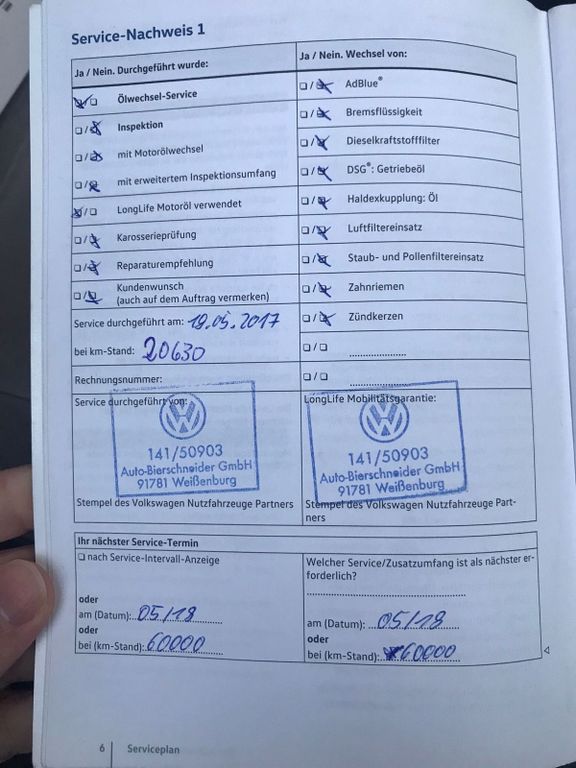 Service-Nachweis 1
Ja / Nein. Durchgeführt wurde:
☒/☐ Ölwechsel-Service
☐/☒ Inspektion
☐/☒ mit Motorölwechsel
☐/☒ mit erweitertem Inspektionsumfang
☒/☐ LongLife Motoröl verwendet
☐/☒ Karosserieprüfung
☐/☒ Reparaturempfehlung
☐/☒ Kundenwunsch
(auch auf dem Auftrag vermerken)
Service durchgeführt am: 19.05.2017
bei km-Stand: 20630
Rechnungsnummer:
Service durchgeführt von:
VW
141/50903
Auto-Bierschneider GmbH
91781 Weißenburg
Stempel des Volkswagen Nutzfahrzeuge Partners
Ja / Nein. Wechsel von:
☐/☒ AdBlue®
☐/☒ Bremsflüssigkeit
☐/☒ Dieselkraftstofffilter
☐/☒ DSG®: Getriebeöl
☐/☒ Haldexkupplung: Öl
☐/☒ Luftfiltereinsatz
☐/☒ Staub- und Pollenfiltereinsatz
☐/☒ Zahnriemen
☐/☒ Zündkerzen
☐/☐ ....................
☐/☐ ....................
LongLife Mobilitätsgarantie:
VW
141/50903
Auto-Bierschneider GmbH
91781 Weißenburg
Stempel des Volkswagen Nutzfahrzeuge Part-
ners
Ihr nächster Service-Termin
☐ nach Service-Intervall-Anzeige
oder
am (Datum): 05/18
oder
bei (km-Stand): 60000
Welcher Service/Zusatzumfang ist als nächster er-
forderlich?
..................................................
am (Datum): 05/18
oder
bei (km-Stand): 60000
6 Serviceplan